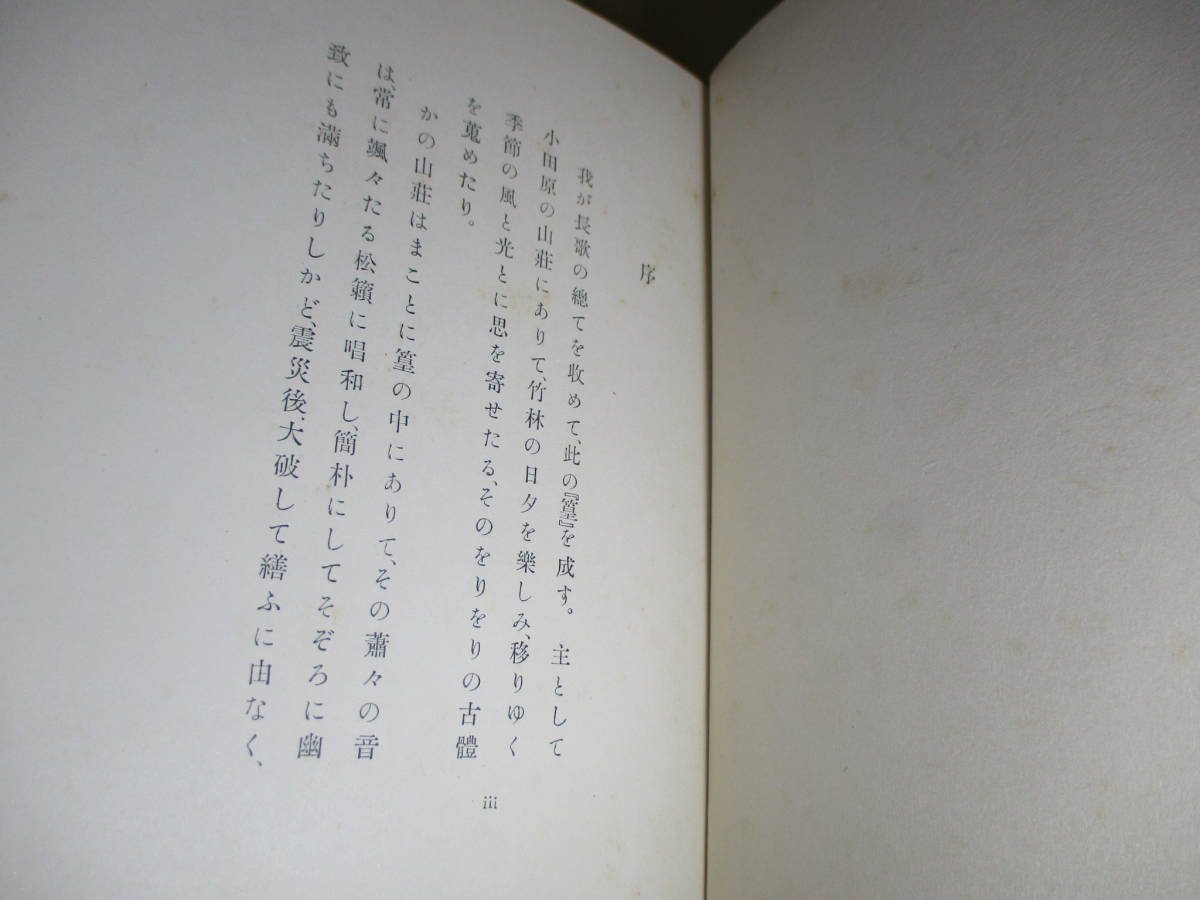 序
我が長歌の總てを收めて、此の『篁』を成す。主として
小田原の山莊にありて、竹林の日夕を樂しみ、移りゆく
季節の風と光とに思を寄せたる、そのをりをりの古體
を蒐めたり。
かの山莊はまことに篁の中にありて、その蕭々の音
は、常に颯々たる松籟に唱和し、簡朴にしてそぞろに幽
致にも滿ちたりしかど、震災後、大破して繕ふに由なく、
iii